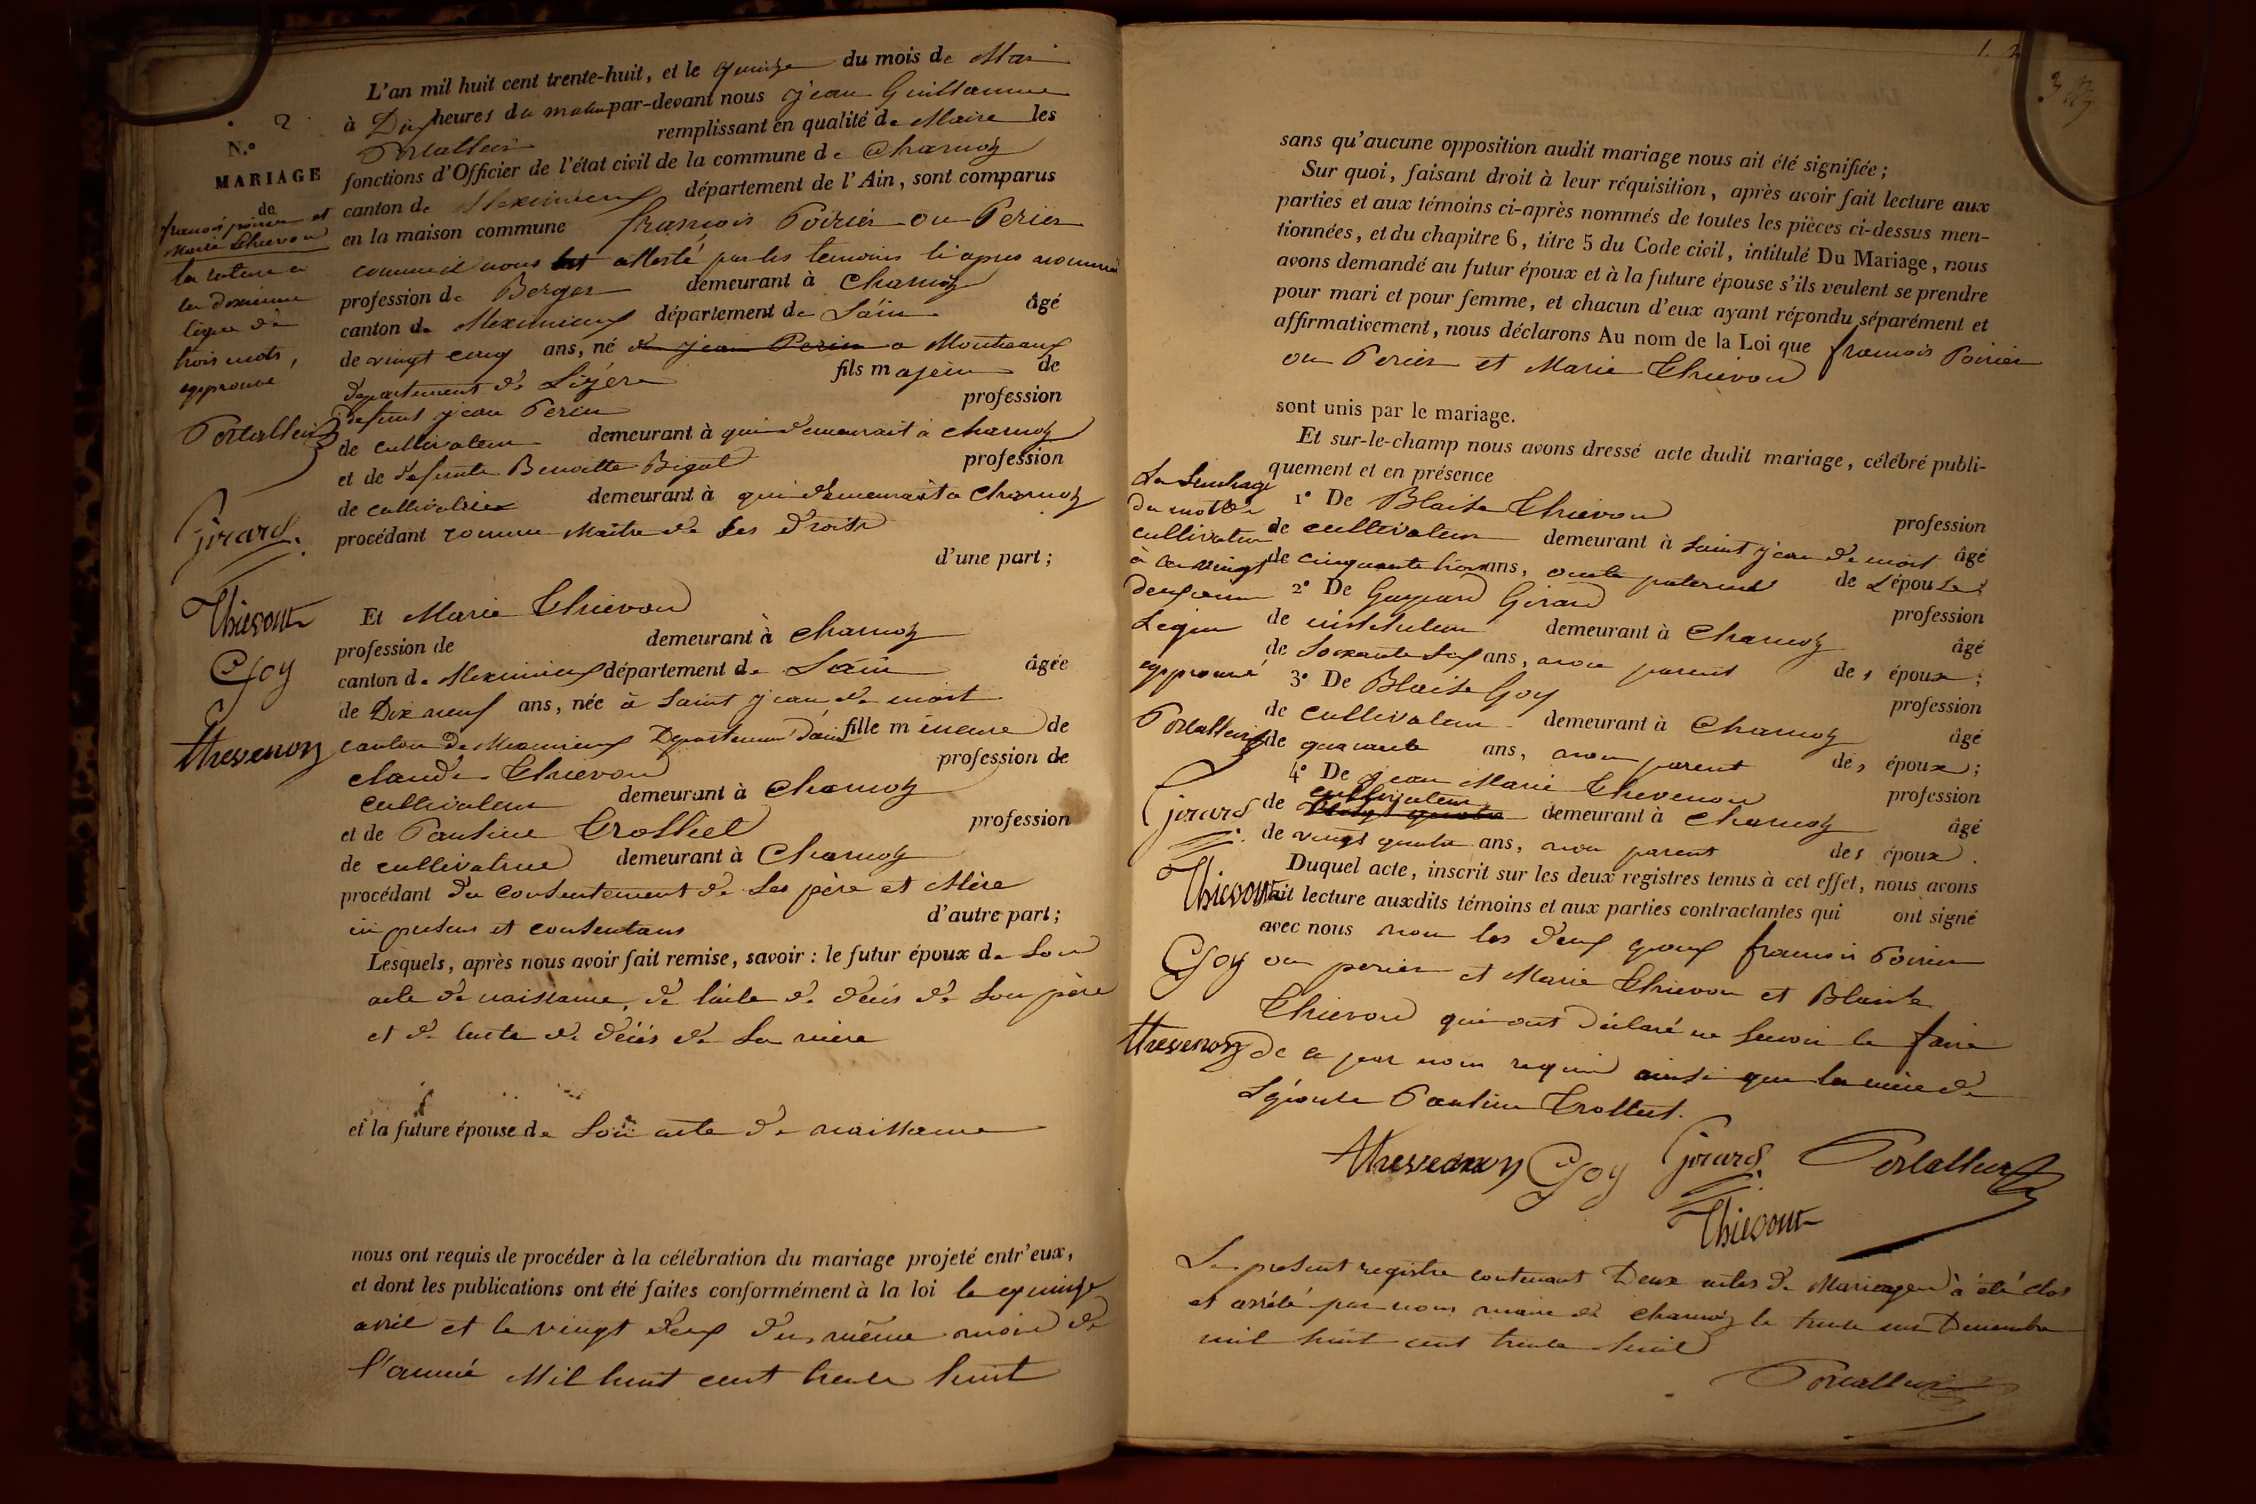 2
N.°
MARIAGE
de
françois poirier et
Marie Thievon
la rature a
la douzieme
ligne de
trois mots,
approuvé
Girard.
Thievon
Goy
thevenon
L'an mil huit cent trente-huit, et le quinze du mois de Mai
à Dix heures du matin par-devant nous jean Guillaume
remplissant en qualité de Maire les
fonctions d'Officier de l'état civil de la commune de Charnoz
canton de Meximieux département de l'Ain, sont comparus
en la maison commune françois Poirier ou Perier
comme il nous est attesté par les temoins ci apres nommé
profession de Berger demeurant à Charnoz
canton de Meximieux département de L'ain âgé
de vingt cinq ans, né de jean Perier a Montceaux
departement de L'izere fils majeur de
defunt jean Perier profession
de cultivateur demeurant à qui demeurait à charnoz
et de defunte Benoitte Bigal profession
de cultivatrice demeurant à qui demeurait a Charnoz
procédant comme Maitre de ses droits
d'une part;
Et Marie Thievon
profession de demeurant à Charnoz
canton de Meximieux département de L'ain âgée
de Dix neuf ans, née à Saint jean de niost
canton de Meximieux Departement d'ain fille mineure de
claude Thievon profession de
cultivateur demeurant à Charnoz
et de Pauline Trolliet profession
de cultivatrice demeurant à Charnoz
procédant du consentement de ses père et Mère
ici presens et consentans d'autre part;
Lesquels, après nous avoir fait remise, savoir: le futur époux de son
acte de naissance, de l'acte de décès de son père
et de lacte de décès de sa mère
et la future épouse de son acte de naissance
nous ont requis de procéder à la célébration du mariage projeté entr'eux,
et dont les publications ont été faites conformément à la loi le quinze
avril et le vingt deux du même mois de
l'année Mil huit cent trente huit
1. 2
sans qu'aucune opposition audit mariage nous ait été signifiée;
Sur quoi, faisant droit à leur réquisition, après avoir fait lecture aux
parties et aux témoins ci-après nommés de toutes les pièces ci-dessus men-
tionnées, et du chapitre 6, titre 5 du Code civil, intitulé Du Mariage, nous
avons demandé au futur époux et à la future épouse s'ils veulent se prendre
pour mari et pour femme, et chacun d'eux ayant répondu séparément et
affirmativement, nous déclarons Au nom de la Loi que françois Poirier
ou Perier et Marie Thievon
sont unis par le mariage.
Et sur-le-champ nous avons dressé acte dudit mariage, célébré publi-
quement et en présence
La surcharge
du mot de
cultivateur
à la vingt
deuxieme
Ligne
approuvé
Girard
Thievon
Goy
thevenon
1° De Blaise Thievon profession
de cultivateur demeurant à Saint jean de niost âgé
de cinquante trois ans, oncle paternel de L'épouse;
2° De Gaspard Girard profession
de instituteur demeurant à Charnoz âgé
de soixante six ans, non parent des époux;
3° De Blaise Goy profession
de cultivateur demeurant à Charnoz âgé
de quarante ans, non parent des époux;
4° De jean Marie Thevenon profession
de cultivateur demeurant à Charnoz âgé
de vingt quatre ans, non parent des époux.
Duquel acte, inscrit sur les deux registres tenus à cet effet, nous avons
fait lecture auxdits témoins et aux parties contractantes qui ont signé
avec nous non les deux epoux françois Poirier
ou perier et Marie Thievon et Blaise
Thievon qui ont déclaré ne savoir le faire
de ce par nous requis ainsi que la mère de
L'épouse Pauline Trolliet.
thevenon Goy Girard.
Thievon
Le present registre contenant Deux actes de Mariages à été clos
et arrêté par nous maire de charnoz le trente un Decembre
mil huit cent trente huit